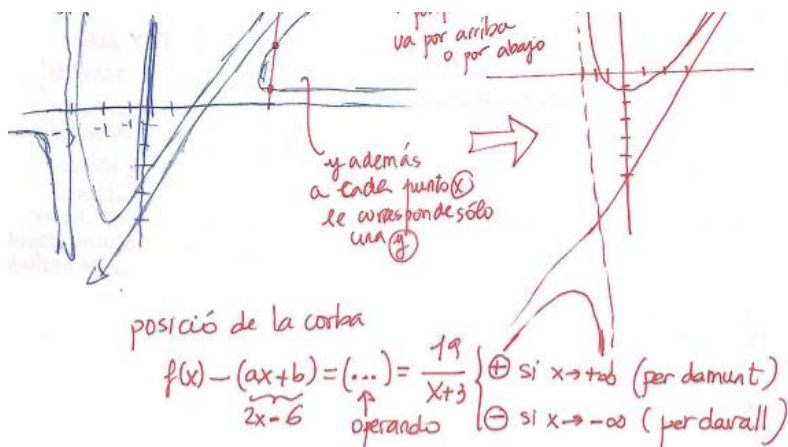 va por arriba
o por abajo
-3 -2 -1
y además
a cada punto x
le corresponde sólo
una y
posició de la corba
f(x) - (ax+b) = (...) = 19/(x+3) { ⊕ si x→+∞ (per damunt)
2x-6 ↑ operando ⊖ si x→-∞ (per davall)